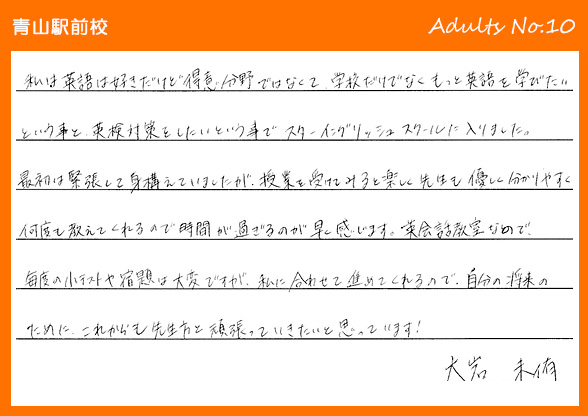 青山駅前校
Adults No.10
私は英語は好きだけど得意分野ではなくて、学校だけでなくもっと英語を学びたい
という事と、英検対策をしたいという事でスターイングリッシュスクールに入りました。
最初は緊張して身構えていましたが、授業を受けてみると楽しく先生も優しく分かりやすく
何度も教えてくれるので時間が過ぎるのが早く感じます。英会話教室なので、
毎度の小テストや宿題は大変ですが、私に合わせて進めてくれるので、自分の将来の
ために、これからも先生方と頑張っていきたいと思っています!
大岩 未侑